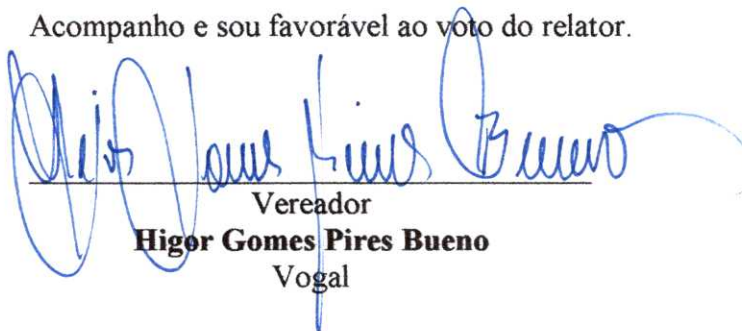 Acompanho e sou favorável ao voto do relator.
Higor Gomes Pires Bueno
Vereador
Higor Gomes Pires Bueno
Vogal